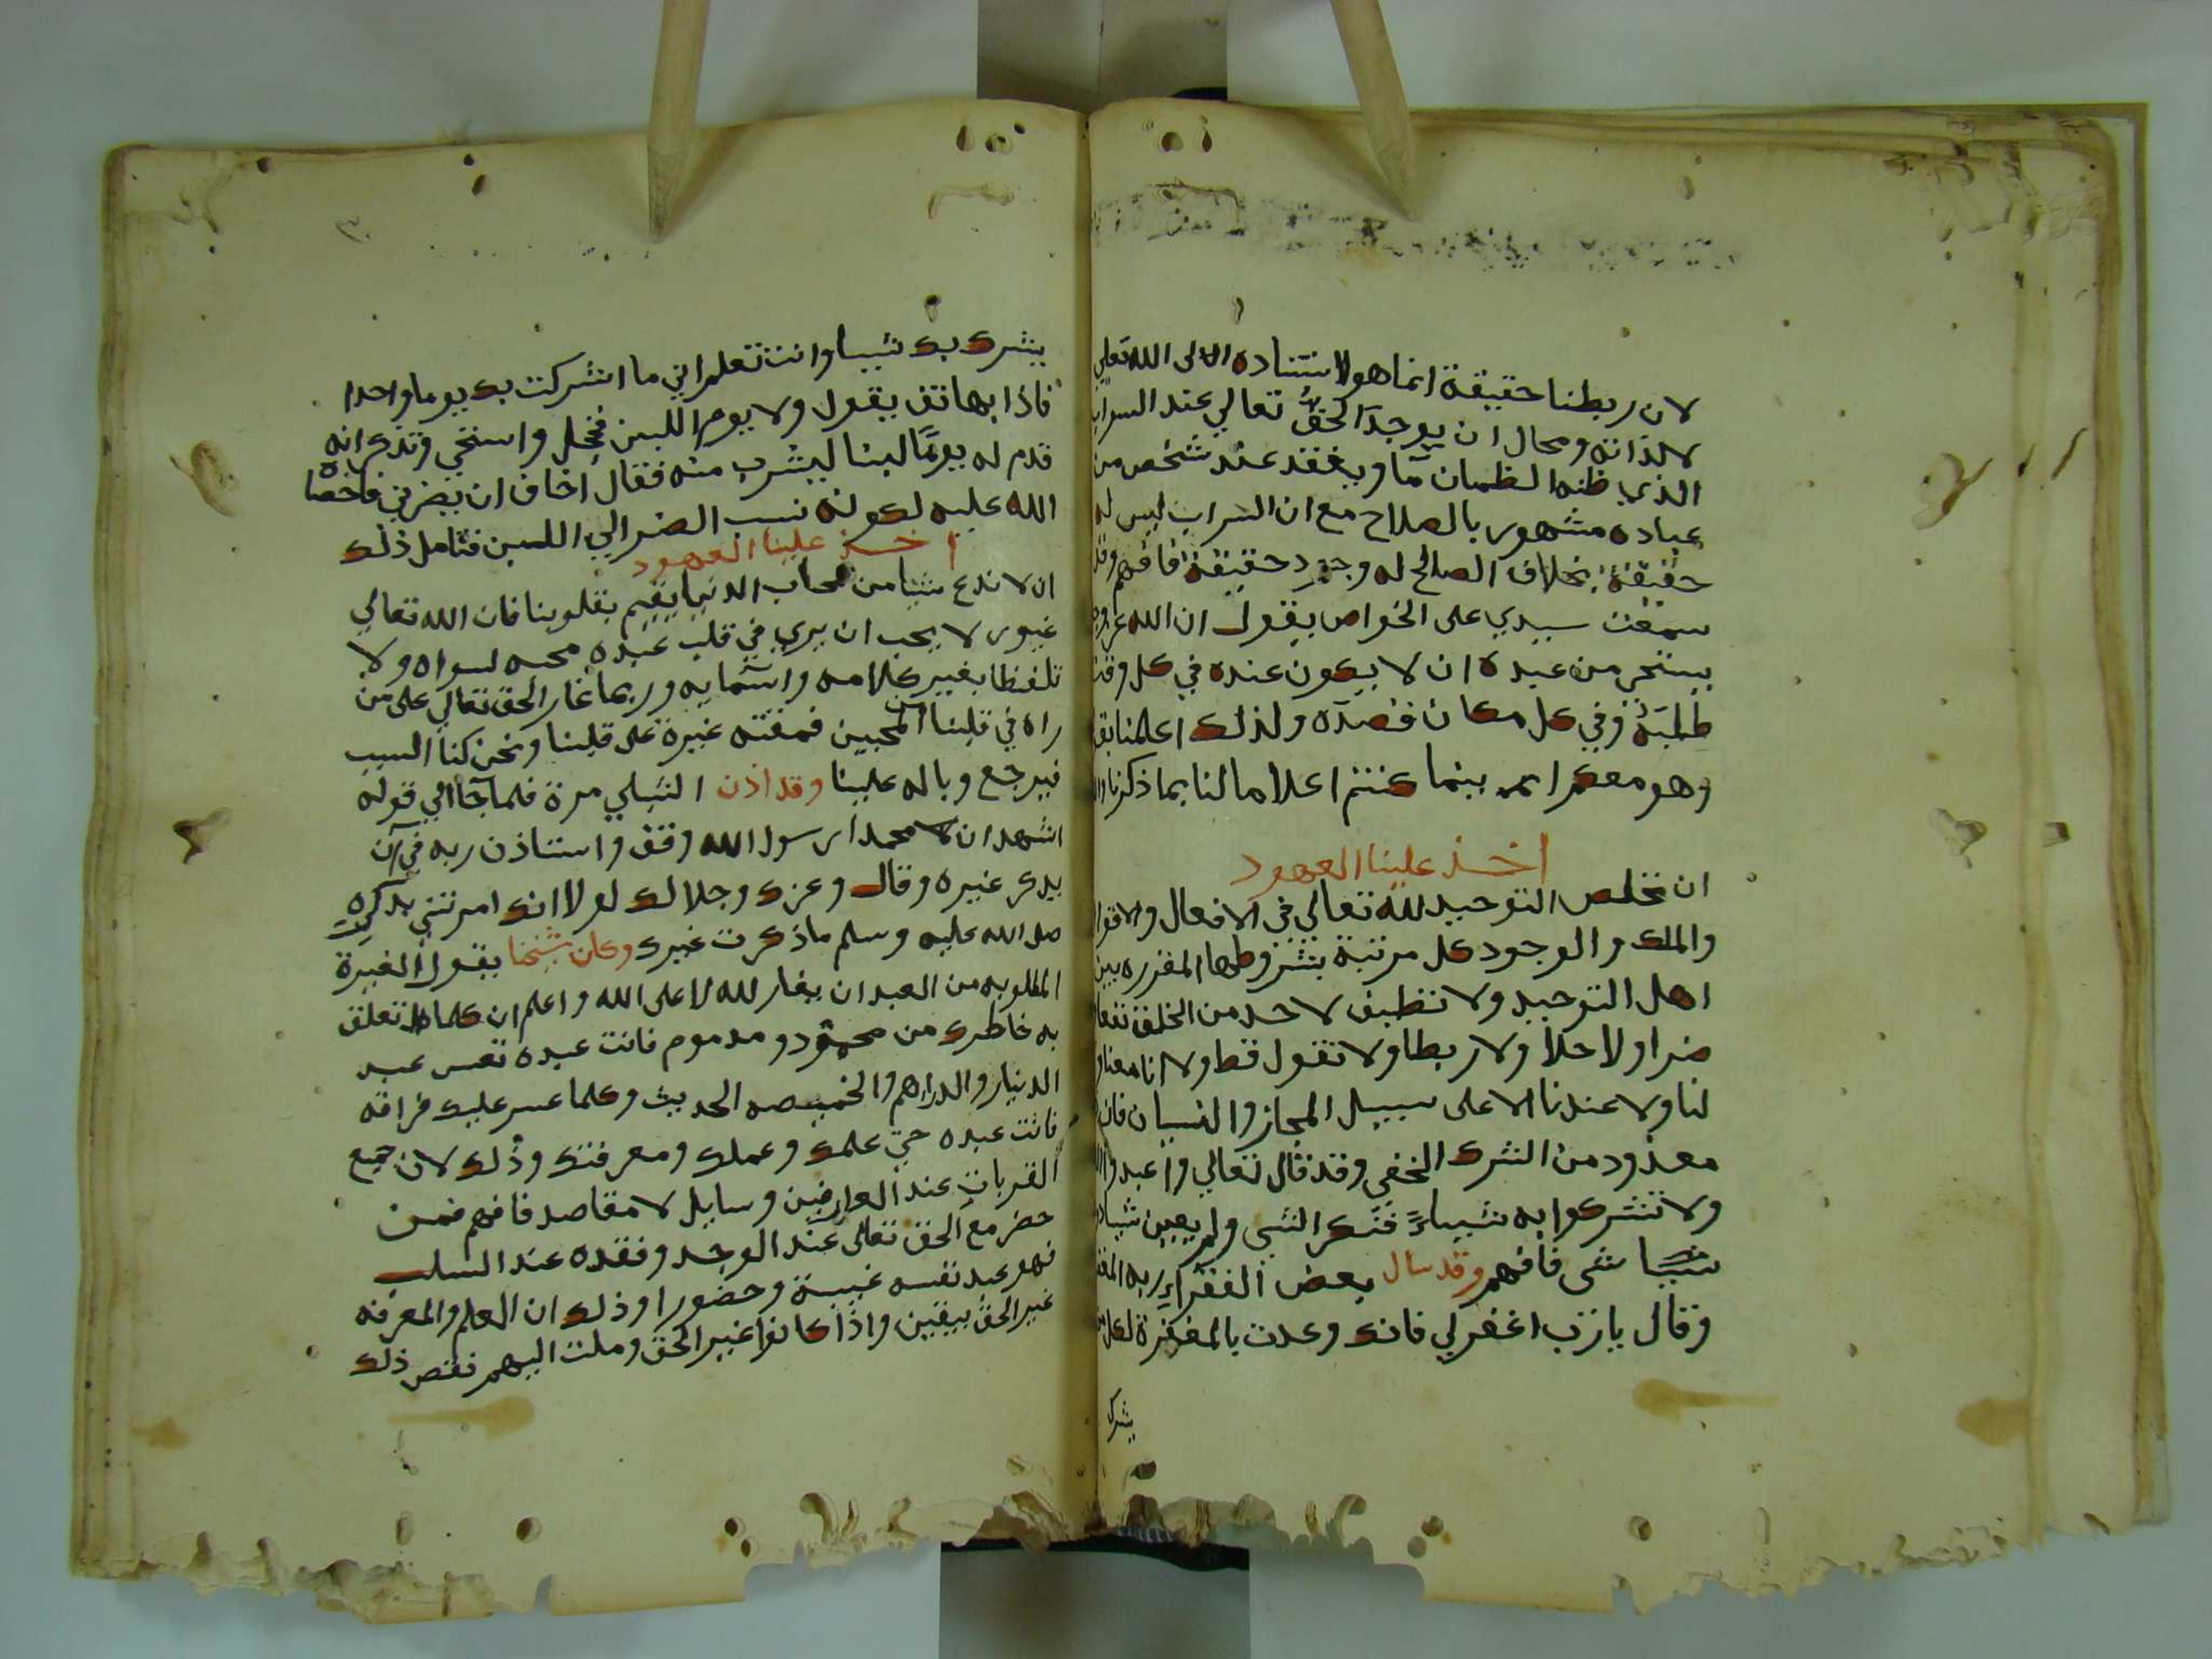 لان ربطنا حقيقة انما هو لاستناده الى الله تعالي
لا لذاته ومحال ان يوجد الحق تعالي عند السراب
الذي ظنه الظمان مآ ويفقد عند شخص من
عباده مشهور بالصلاح مع ان السراب ليس له
حقيقة بخلاف الصالح له وجود حقيقة فافهم وقد
سمعت سيدي على الخواص يقول ان الله عز وجل
يستحي من عبده ان لا يكون عنده في كل وقت
طلبه وفي كل مكان قصده ولذلك اعلمنا بق
وهو معكم اينما كنتم اعلاما لنا بما ذكرنا
اخذ علينا العهود
ان نخلص التوحيد لله تعالي في الافعال والاقوا
والملك والوجود كل مرتبة بشروطها المقررة بين
اهل التوحيد ولا نضيف لاحد من الخلق نفعا
ضرا ولا حلا ولا ربطا ولا نقول قط ولا انا معنا و
لنا ولا عندنا الا على سبيل المجاز والنسيان فان
معدود من الشرك الخفي وقد قال تعالي واعبدوا
ولا تشركوا به شيياً فنكر الشي ولم يعين شيا د
شيا شى فافهم وقد سال بعض الفقرآ ربه المغ
وقال يارب اغفر لي فانك وعدت بالمغفرة لكل من
يشرك
يشرك بك شييا وانت تعلم اني ما اشركت بك يوما واحدا
فاذا بهاتف يقول ولا يوم اللبن فخجل واستحي وتذكر انه
قدم له يومًا لبنا ليشرب منه فقال اخاف ان يضرني فاحصاه
الله عليه لكونه نسب الضر الي اللبن فتامل ذلك
اخذ علينا العهود
ان لا ندع شيا من محاب الدنيا يقيم بقلوبنا فان الله تعالي
غيور لا يحب ان يري في قلب عبده محبه لسواه ولا
تلفظا بغير كلامه واسمآيه وربما غار الحق تعالي على من
راه في قلبنا من المحبين فمقته غيرة على قلبنا ونحن كنا السبب
فيرجع وباله علينا وقد اذن الشبلي مرة فلما جآ الي قوله
اشهد ان محمدا رسول الله وقف واستاذن ربه في ان
يذكر غيره وقال وعزك وجلالك لولا انك امرتني بذكره
صلى الله عليه وسلم ماذكرت غيرك وكان شيخنا يقول الغيرة
المطلوبه من العبد ان يغار لله لا على الله واعلم ان كلما تعلق
به خاطرك من محمود و مدموم فانت عبده تعس عبد
الدينار والدراهم والخميصه الحديث وكلما عسر عليك فراقه
فانت عبده حتي علمك وعملك ومعرفتك وذلك لان جميع
القربات عند العارفين وسايل لا مقاصد فافهم فمن
حضر مع الحق تعالى عند الوجد وفقده عند السلب
فهو عبد نفسه غيبة وحضورا وذلك ان العلم والمعرفه
غير الحق بيقين واذا كانوا غير الحق وملت اليهم نقص ذلك